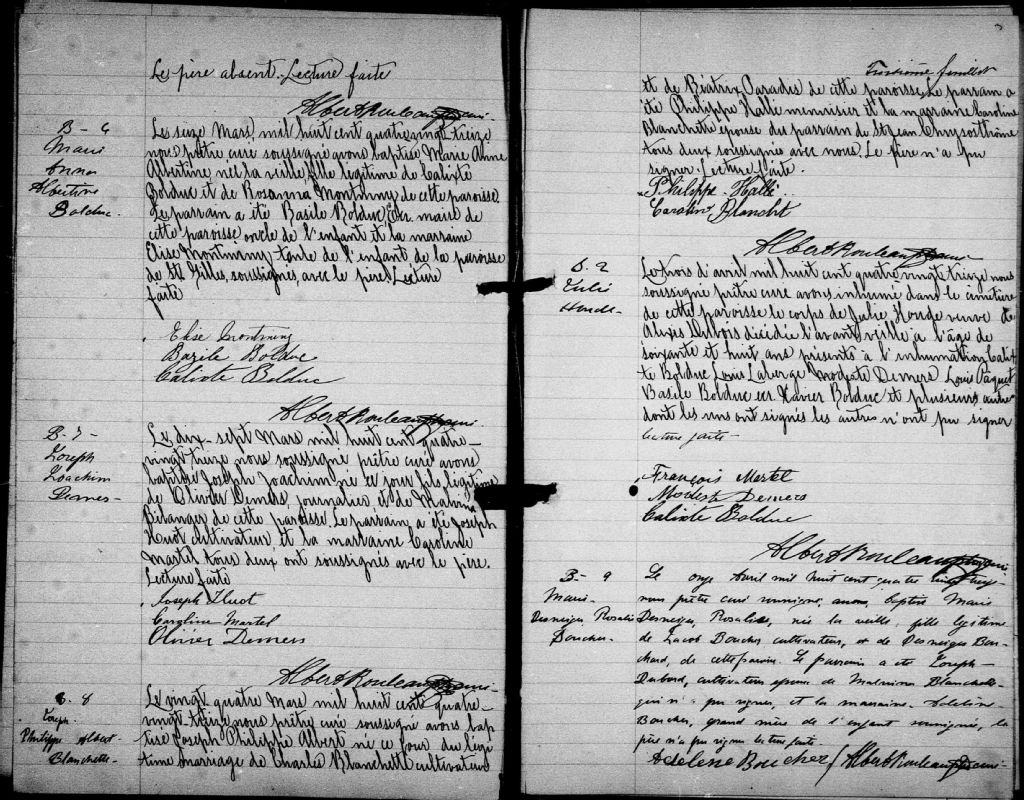 Le père absent. Lecture faite
Albert Rouleau ptre curé
B - 6
Marie
Anna
Albertine
Bolduc.
Le seize Mars, mil huit cent quatre vingt treize
nous prêtre curé soussigné avons baptisé Marie Anne
Albertine née la veille, fille légitime de Calixte
Bolduc et de Rosanna Montminy de cette paroisse.
Le parrain a été Basile Bolduc, Ecr. maire de
cette paroisse oncle de l'enfant et la marraine
Elise Montminy tante de l'enfant de la paroisse
de St Gilles, soussignés, avec le père. Lecture
faite
Elise Montminy
Bazile Bolduc
Calixte Bolduc
Albert Rouleau ptre curé
B - 7 -
Joseph
Joachim
Demers -
Le dix-sept Mars mil huit cent quatre-
vingt treize nous soussigné prêtre curé avons
baptisé Joseph Joachim né ce jour fils légitime
de Olivier Demers, journalier et de Malvina
Bélanger de cette paroisse. Le parrain a été Joseph
Huot cultivateur et la marraine Caroline
Martel tous deux ont soussignés avec le père.
Lecture faite
Joseph Huot
Caroline Martel
Olivier Demers
Albert Rouleau ptre curé
B. 8
Joseph
Philippe Albert
Blanchette -
Le vingt quatre Mars mil huit cent quatre-
vingt-treize nous prêtre curé soussigné avons bap
tisé Joseph Philippe Albert né ce jour du légi
time mariage de Charles Blanchette cultivateur
Troisième feuillet
et de Béatrix Paradis de cette paroisse. Le parrain a
été Philippe Hallé menuisier et la marraine Caroline
Blanchette épouse du parrain de St Jean Chrysosthôme
tous deux soussignés avec nous. Le père n'a pu
signer. Lecture faite.
Philippe Hallé
Caroline Blancht
Albert Rouleau ptre curé
S. 2
Julie
Houde -
Le trois d'avril mil huit cent quatre vingt treize nous
soussigné prêtre curé avons inhumé dans le cimetière
de cette paroisse le corps de Julie Houde veuve de
Alexis Dubois décédée l'avant veille à l'âge de
soixante et huit ans présents à l'inhumation Calix
te Bolduc Louis Laberge Modeste Demers Louis Paquet
Basile Bolduc ecr Xavier Bolduc et plusieurs autres
dont les uns ont signés les autres n'ont pu signer
lecture faite -
François Martel
Modeste Demers
Calixte Bolduc
Albert Rouleau ptre curé
B - 9
Marie
Desneiges Rosalie
Boucher -
Le onze Avril mil huit cent quatre vingt treize
nous prêtre curé soussigné, avons, baptisé Marie
Desneiges, Rosalie, née la veille, fille légitime
de Jacob Boucher cultivateur, et de Desneiges Bou
chard, de cette paroisse. Le parrain a été Joseph
Dubord, cultivateur époux de Malvina Blanchet
qui n'a pu signer, et la marraine Adeline
Boucher, grand mère de l'enfant soussignée, le
père n'a pu signer lecture faite.
Adelene Boucher Albert Rouleau ptre curé